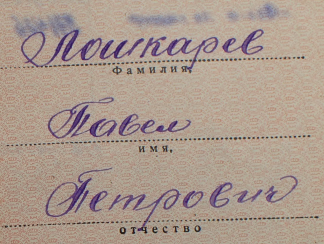 Лошкарев
Фамилия,
Павел
имя,
Петрович
отчество